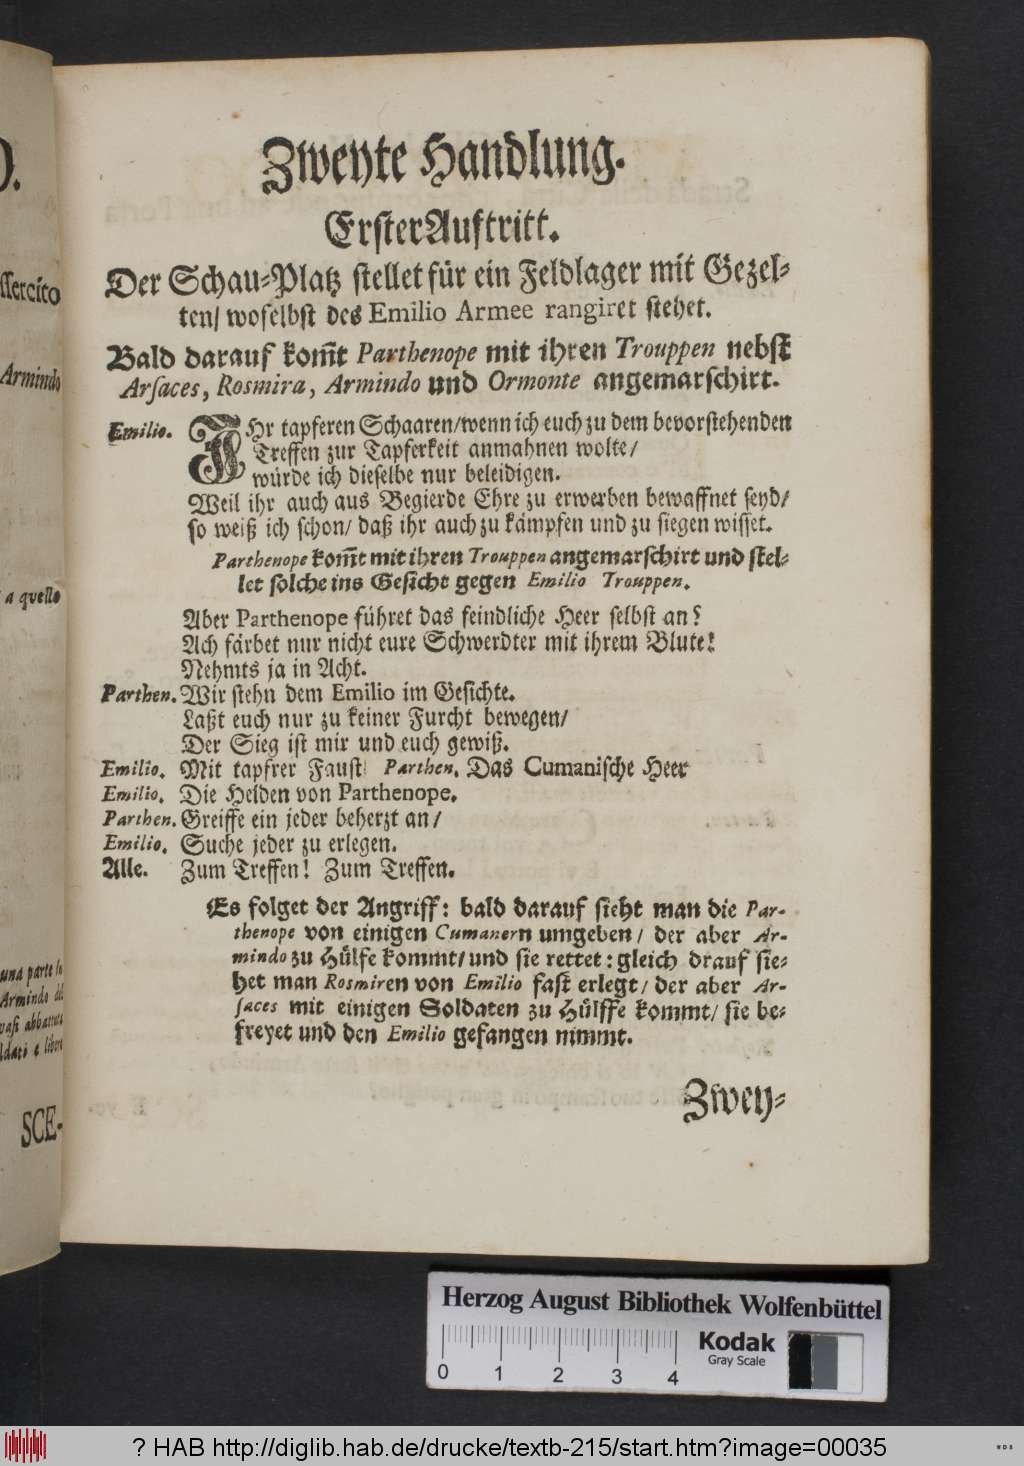 ).
ssercito
Armindo
a quello
una parte
Armindo
vasi abbattuta
ldati e
SCE-
Zweyte Handlung.
Erster Auftritt.
Der Schau-Platz stellet für ein Feldlager mit Gezel-
ten/ woselbst des Emilio Armee rangiret stehet.
Bald darauf kom̃t Parthenope mit ihren Trouppen nebst
Arsaces, Rosmira, Armindo und Ormonte angemarschirt.
Emilio. IHr tapferen Schaaren/wenn ich euch zu dem bevorstehenden
Treffen zur Tapferkeit anmahnen wolte/
würde ich dieselbe nur beleidigen.
Weil ihr auch aus Begierde Ehre zu erwerben bewaffnet seyd/
so weiß ich schon/ daß ihr auch zu kämpfen und zu siegen wisset.
Parthenope kom̃t mit ihren Trouppen angemarschirt und stel-
let solche ins Gesicht gegen Emilio Trouppen.
Aber Parthenope führet das feindliche Heer selbst an?
Ach färbet nur nicht eure Schwerdter mit ihrem Blute!
Nehmts ja in Acht.
Parthen. Wir stehn dem Emilio im Gesichte.
Laßt euch nur zu keiner Furcht bewegen/
Der Sieg ist mir und euch gewiß.
Emilio. Mit tapfrer Faust Parthen. Das Cumanische Heer
Emilio. Die Helden von Parthenope.
Parthen. Greiffe ein jeder beherzt an/
Emilio. Suche jeder zu erlegen.
Alle. Zum Treffen! Zum Treffen.
Es folget der Angriff: bald darauf sieht man die Par-
thenope von einigen Cumanern umgeben/ der aber Ar-
mindo zu Hülfe kommt/ und sie rettet: gleich drauf sie-
het man Rosmiren von Emilio fast erlegt/ der aber Ar-
saces mit einigen Soldaten zu Hülffe kommt/ sie be-
freyet und den Emilio gefangen nimmt.
Zwey-
Herzog August Bibliothek Wolfenbüttel
Kodak
Gray Scale
0 1 2 3 4
? HAB http://diglib.hab.de/drucke/textb-215/start.htm?image=00035